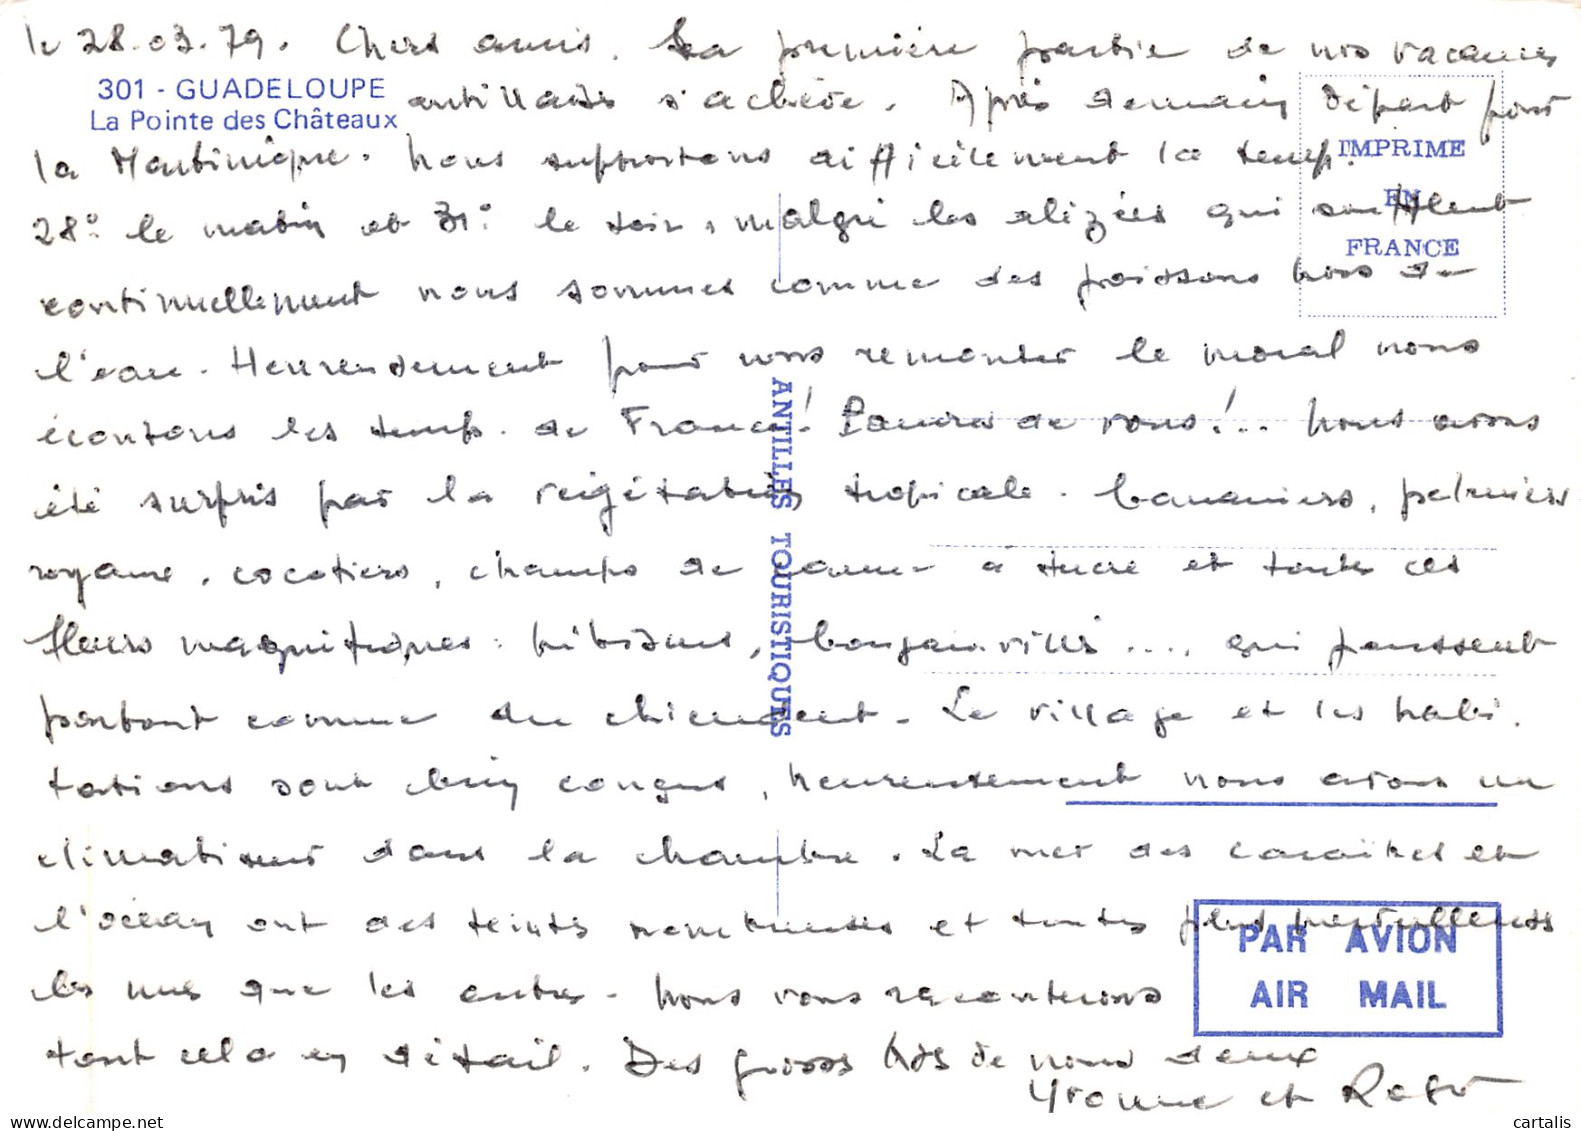 le 28.03.79. Chers amis. La première partie de nos vacances
301 - GUADELOUPE
La Pointe des Châteaux
antillaises s'achève. Après demain départ pour
la Martinique. Nous supportons difficilement la temp.
IMPRIME
EN
FRANCE
28° le matin et 31° le soir, malgré les alizées qui soufflent
continuellement nous sommes comme des poissons hors de
l'eau. Heureusement pour nous remonter le moral nous
écoutons les temp. de France! Pauvres de vous!.. Nous avons
été surpris par la végétation tropicale. bananiers, palmiers
royaume, cocotiers, champs de canne à sucre et toutes ces
fleurs magnifiques: hibiscus, bougainvilliés .... qui poussent
partout comme du chiendent. Le village et les habi.
tations sont bien conçus, heureusement nous avons un
climatiseur dans la chambre. La mer des caraïbes et
l'océan ont des teintes et toutes plus merveilleuses
les unes que les autres. Nous vous raconterons
tout cela en détail. Des gross bds de nous deux
Yvonne et Roger
ANTILLES TOURISTIQUES
PAR AVION
AIR MAIL
cartalis